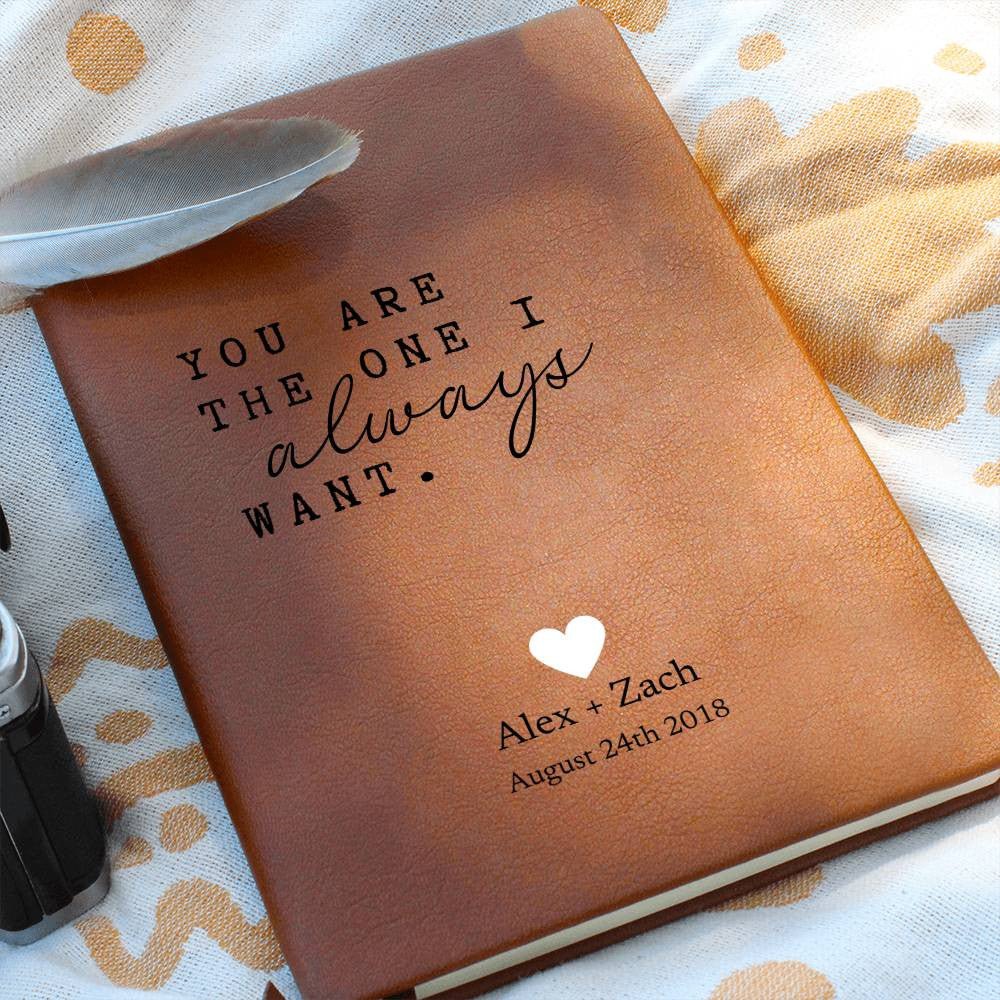 YOU ARE
THE ONE I
always
WANT.
Alex + Zach
August 24th 2018